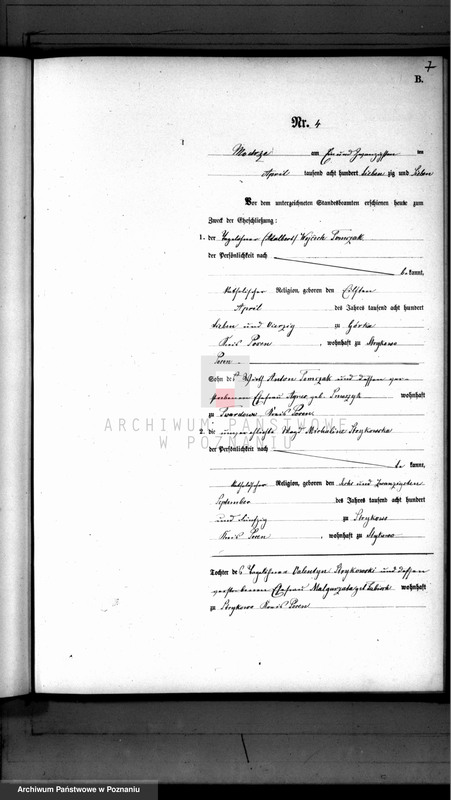 7
B.
Nr. 4
Modrze am Ein und Zwanzigsten ten
April tausend acht hundert sieben zig und Sieben
Vor dem unterzeichneten Standesbeamten erschienen heute zum
Zweck der Eheschließung:
1. der Tagelöhner (Adalbert) Wojciech Tomczak
der Persönlichkeit nach
be kannt,
katholischer Religion, geboren den Elften
April des Jahres tausend acht hundert
sieben und vierzig zu Górka
Kreis Posen, wohnhaft zu Strykowo
Posen
Sohn des Anton Tomczak und dessen ver-
storbenen Ehefrau Agnes geb. wohnhaft
zu Kreis Posen
2. die unverehelichte Magd Michalina Strykowska
der Persönlichkeit nach
be kannt,
katholischer Religion, geboren den Sechs und Zwanzigsten
September des Jahres tausend acht hundert
und fünfzig zu Strykowo
Kreis Posen, wohnhaft zu Strykowo
Tochter des Tagelöhner Valentyn Strykowski und dessen
verstorbenen Ehefrau Malgorzata geb. wohnhaft
zu Strykowo Kreis Posen
ARCHIWUM PAŃSTWOWE
W POZNANIU
Archiwum Państwowe w Poznaniu